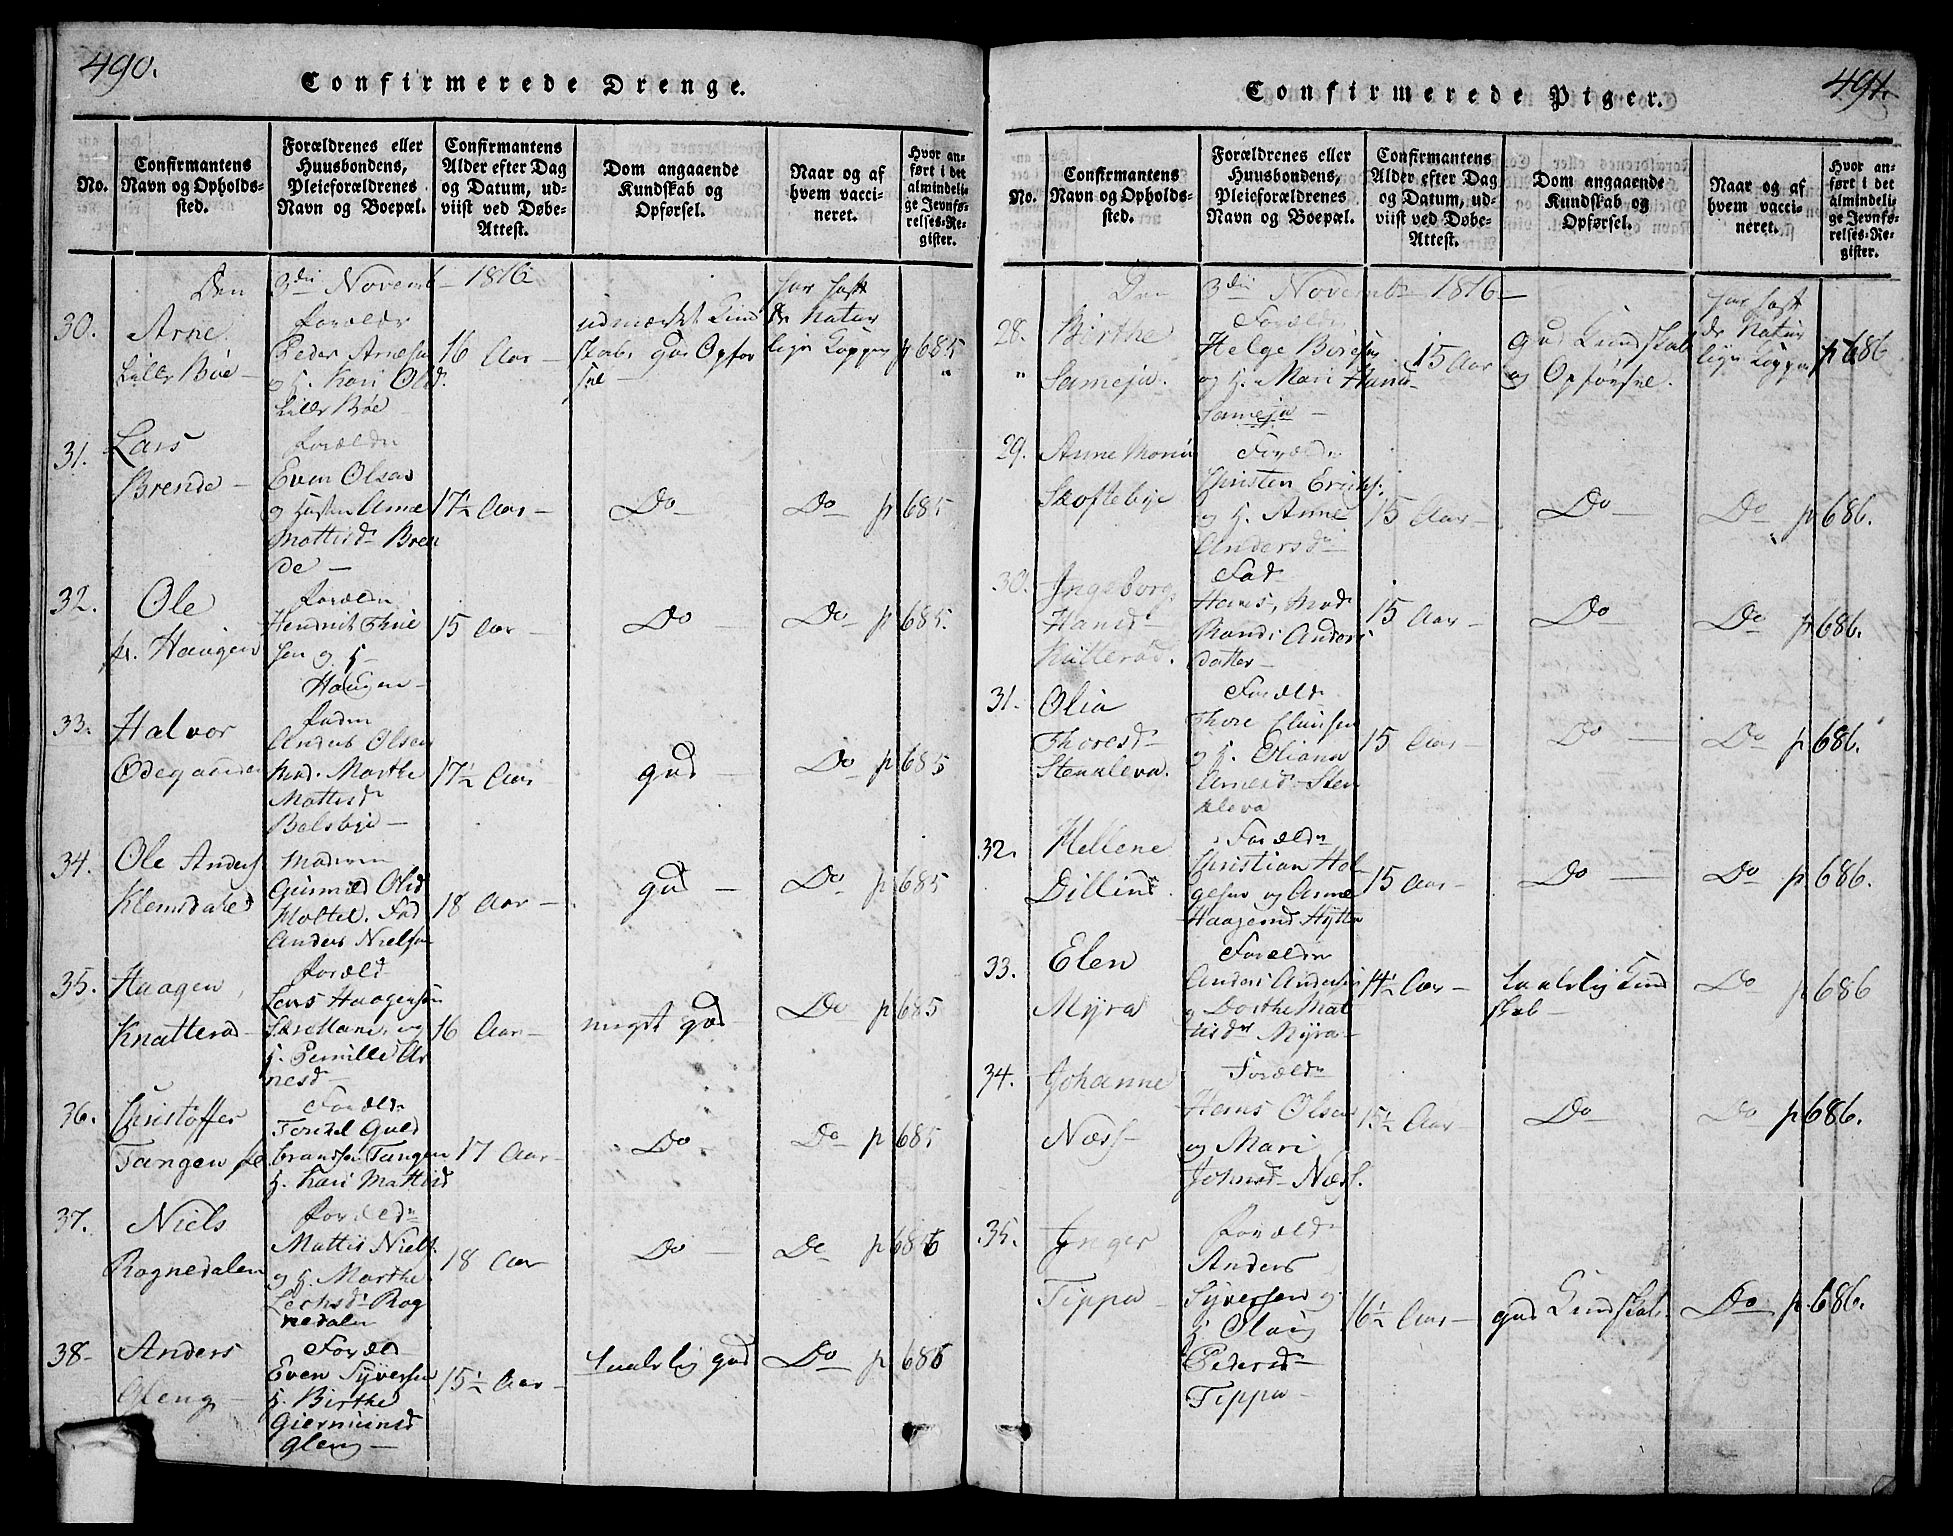 490.
Confirmerede Drenge.
No.
Confirmantens
Navn og Opholds-
sted.
Forældrenes eller
Huusbondens,
Pleieforældrenes
Navn og Boepæl.
Confirmantens
Alder efter Dag
og Datum, ud-
viist ved Døbe-
Attest.
Dom angaaende
Kundskab og
Opførsel.
Naar og af
hvem vacci-
neret.
Hvor an-
ført i det
almindeli-
ge Jevnfø-
relses-Re-
gister.
Den 3die Novemb 1816
30.
Arne
Lille Bøe
Foreldr
Peder Arnesen
og H. Kari Olsd.
Lille Bøe
16 Aar
udmerket Kund
skab, god Opfør
sel
har haft
de Natur
lige Kopper
p 685
31.
Lars
Brende
Foreldr
Even Olsen
og Hustru Anne
Mattisd Bren
de
17½ Aar
Do
Do
p 685
32.
Ole
Haugen
Foreldr
Hendrik
sen og H
Haugen
15 Aar
Do
Do
p 685.
33.
Halvor
Ødegaarden
Faderen
Anders Olsen
Mod. Marthe
Mattisd
Balsbye
17½ Aar
god
Do
p 685
34.
Ole Anders
Klemsdahl
Moderen
Gunnild Olsd
Holtet. Fad
Anders Nielsen
18 Aar
god
Do
p 685
35.
Haagen
Knatterød
Foreld
Lars Haagensen
og
H. Pernille Ar
nesd
16 Aar
meget god
Do
p 685
36.
Christoffer
Tangen
Foreldr
Guld
brandsen Tangen
H. Kari Mattisd
17 Aar
Do
Do
p 685
37.
Niels
Rognedalen
Foreldr
Mattis Niels.
og H. Marthe
Rog
nedalen
18 Aar
Do
Do
p 686
38
Anders
Gleng
Foreld
Even Syversen
H. Birthe
Giermunsd
Gleng
15½ Aar
taalelig god
Do
p 686
491.
Confirmerede Piger.
No.
Confirmantens
Navn og Opholds-
sted.
Forældrenes eller
Huusbondens,
Pleieforældrenes
Navn og Boepæl.
Confirmantens
Alder efter Dag
og Datum, ud-
viist ved Døbe-
Attest.
Dom angaaende
Kundskab og
Opførsel.
Naar og af
hvem vacci-
neret.
Hvor an-
ført i det
almindeli-
ge Jevnfø-
relses-Re-
gister.
Den 3die Novemb 1816
28.
Birthe
Sameja.
Foreldr
Helge Børesen
og H. Mari Hansd
Sameja
15 Aar
god Kundskab
og Opførsel.
har haft
de Natur
lige Kopper
p 686
29.
Anne Maria
Skoftebye
Foreldr
Christen Eriks.
og H. Anne
Andersd
15 Aar
Do
Do
p 686.
30.
Ingeborg
Hansd
Fad
Hans, Mod
Randi Anders
datter
15 Aar
Do
Do
p 686.
31.
Olia
Thoresd
Stenkleva.
Foreld
Thore Clausen
og H. Eliana
Arnesd Sten
kleva
15 Aar
Do
Do
p 686.
32.
Hellene
Dillind
Foreldr
Christian Hel
gesen og Anne
Haagensd Hytta
15 Aar
Do
Do
p 686.
33.
Elen
Myra
Foreldr
Anders Andersen
og Dorthe Mat
tisdr Myra
14½ Aar
taalelig Kund
skab
Do
p 686
34.
Johanne
Næss
Foreldr
Hans Olsen
og Mari
Johnsd Næss.
15½ Aar
Do
Do
p 686.
35.
Inger
Tippa
Foreldr
Anders
Syversen og
H. Olaug
Pedersd
Tippa
16½ Aar
god Kundskab
Do
p 686.